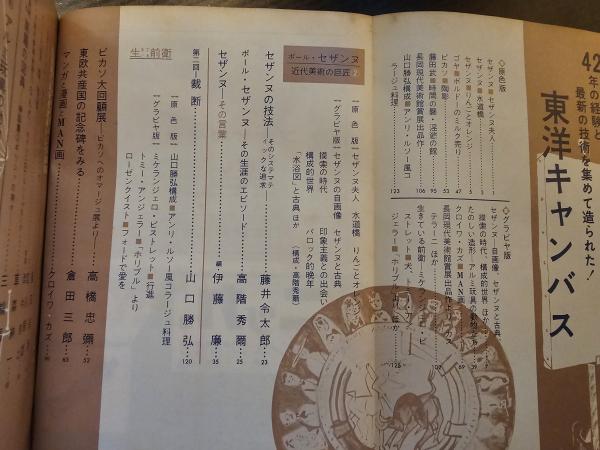 42年の経験と
最新の技術を集めて造られた!
東洋キャンバス
◇原色版
セザンヌ■セザンヌ夫人
セザンヌ■水道橋
セザンヌ■りんごとオレンジ
ゴヤ■ボルドーのミルク売り
ピカソ■陶彫
藤田武■時間の罠・淫欲の館
長岡現代美術館賞展出品作
山口勝弘構成■アンリ・ルソー風コ
ラージュ料理
123
◇グラビヤ版
セザンヌ 自画像 セザンヌと古典
摸索の時代 構成的世界 ほか
たのしい造形 アルミ玩具の動物たち
クロイワ・カズ■MAN画
長岡現代美術館賞展出品作
テラー ほか
生きている前衛
ポール・セザンヌ
近代美術の巨匠 2
〔原色版〕セザンヌ夫人 水道橋 りんごとオレンジ
〔グラビヤ版〕セザンヌの自画像 セザンヌと古典
摸索の時代 印象主義との出会い
構成的世界 バロック的晩年
「水浴図」と古典 ほか (構成・高階秀爾)
セザンヌの技法 そのシステマテイックな追求 藤井令太郎 23
ポール・セザンヌ その生涯のエピソード 高階秀爾 25
セザンヌ その言葉 編 伊藤廉 35
生きている前衛
第二回 裁断 山口勝弘 120
〔原色版〕山口勝弘構成■アンリ・ルソー風コラージュ料理
〔グラビヤ版〕ミケランジェロ・ピストレット■行進
トミー・アンジェラー■「ホリブル」より
ローゼンクイスト■フォードで愛を
ピカソ大回顧展 ピカソへのオマージュ展より 高橋忠彌 52
東欧共産国の記念碑をみる 倉田三郎 63
マンガと漫画とMAN画 クロイワ・カズ